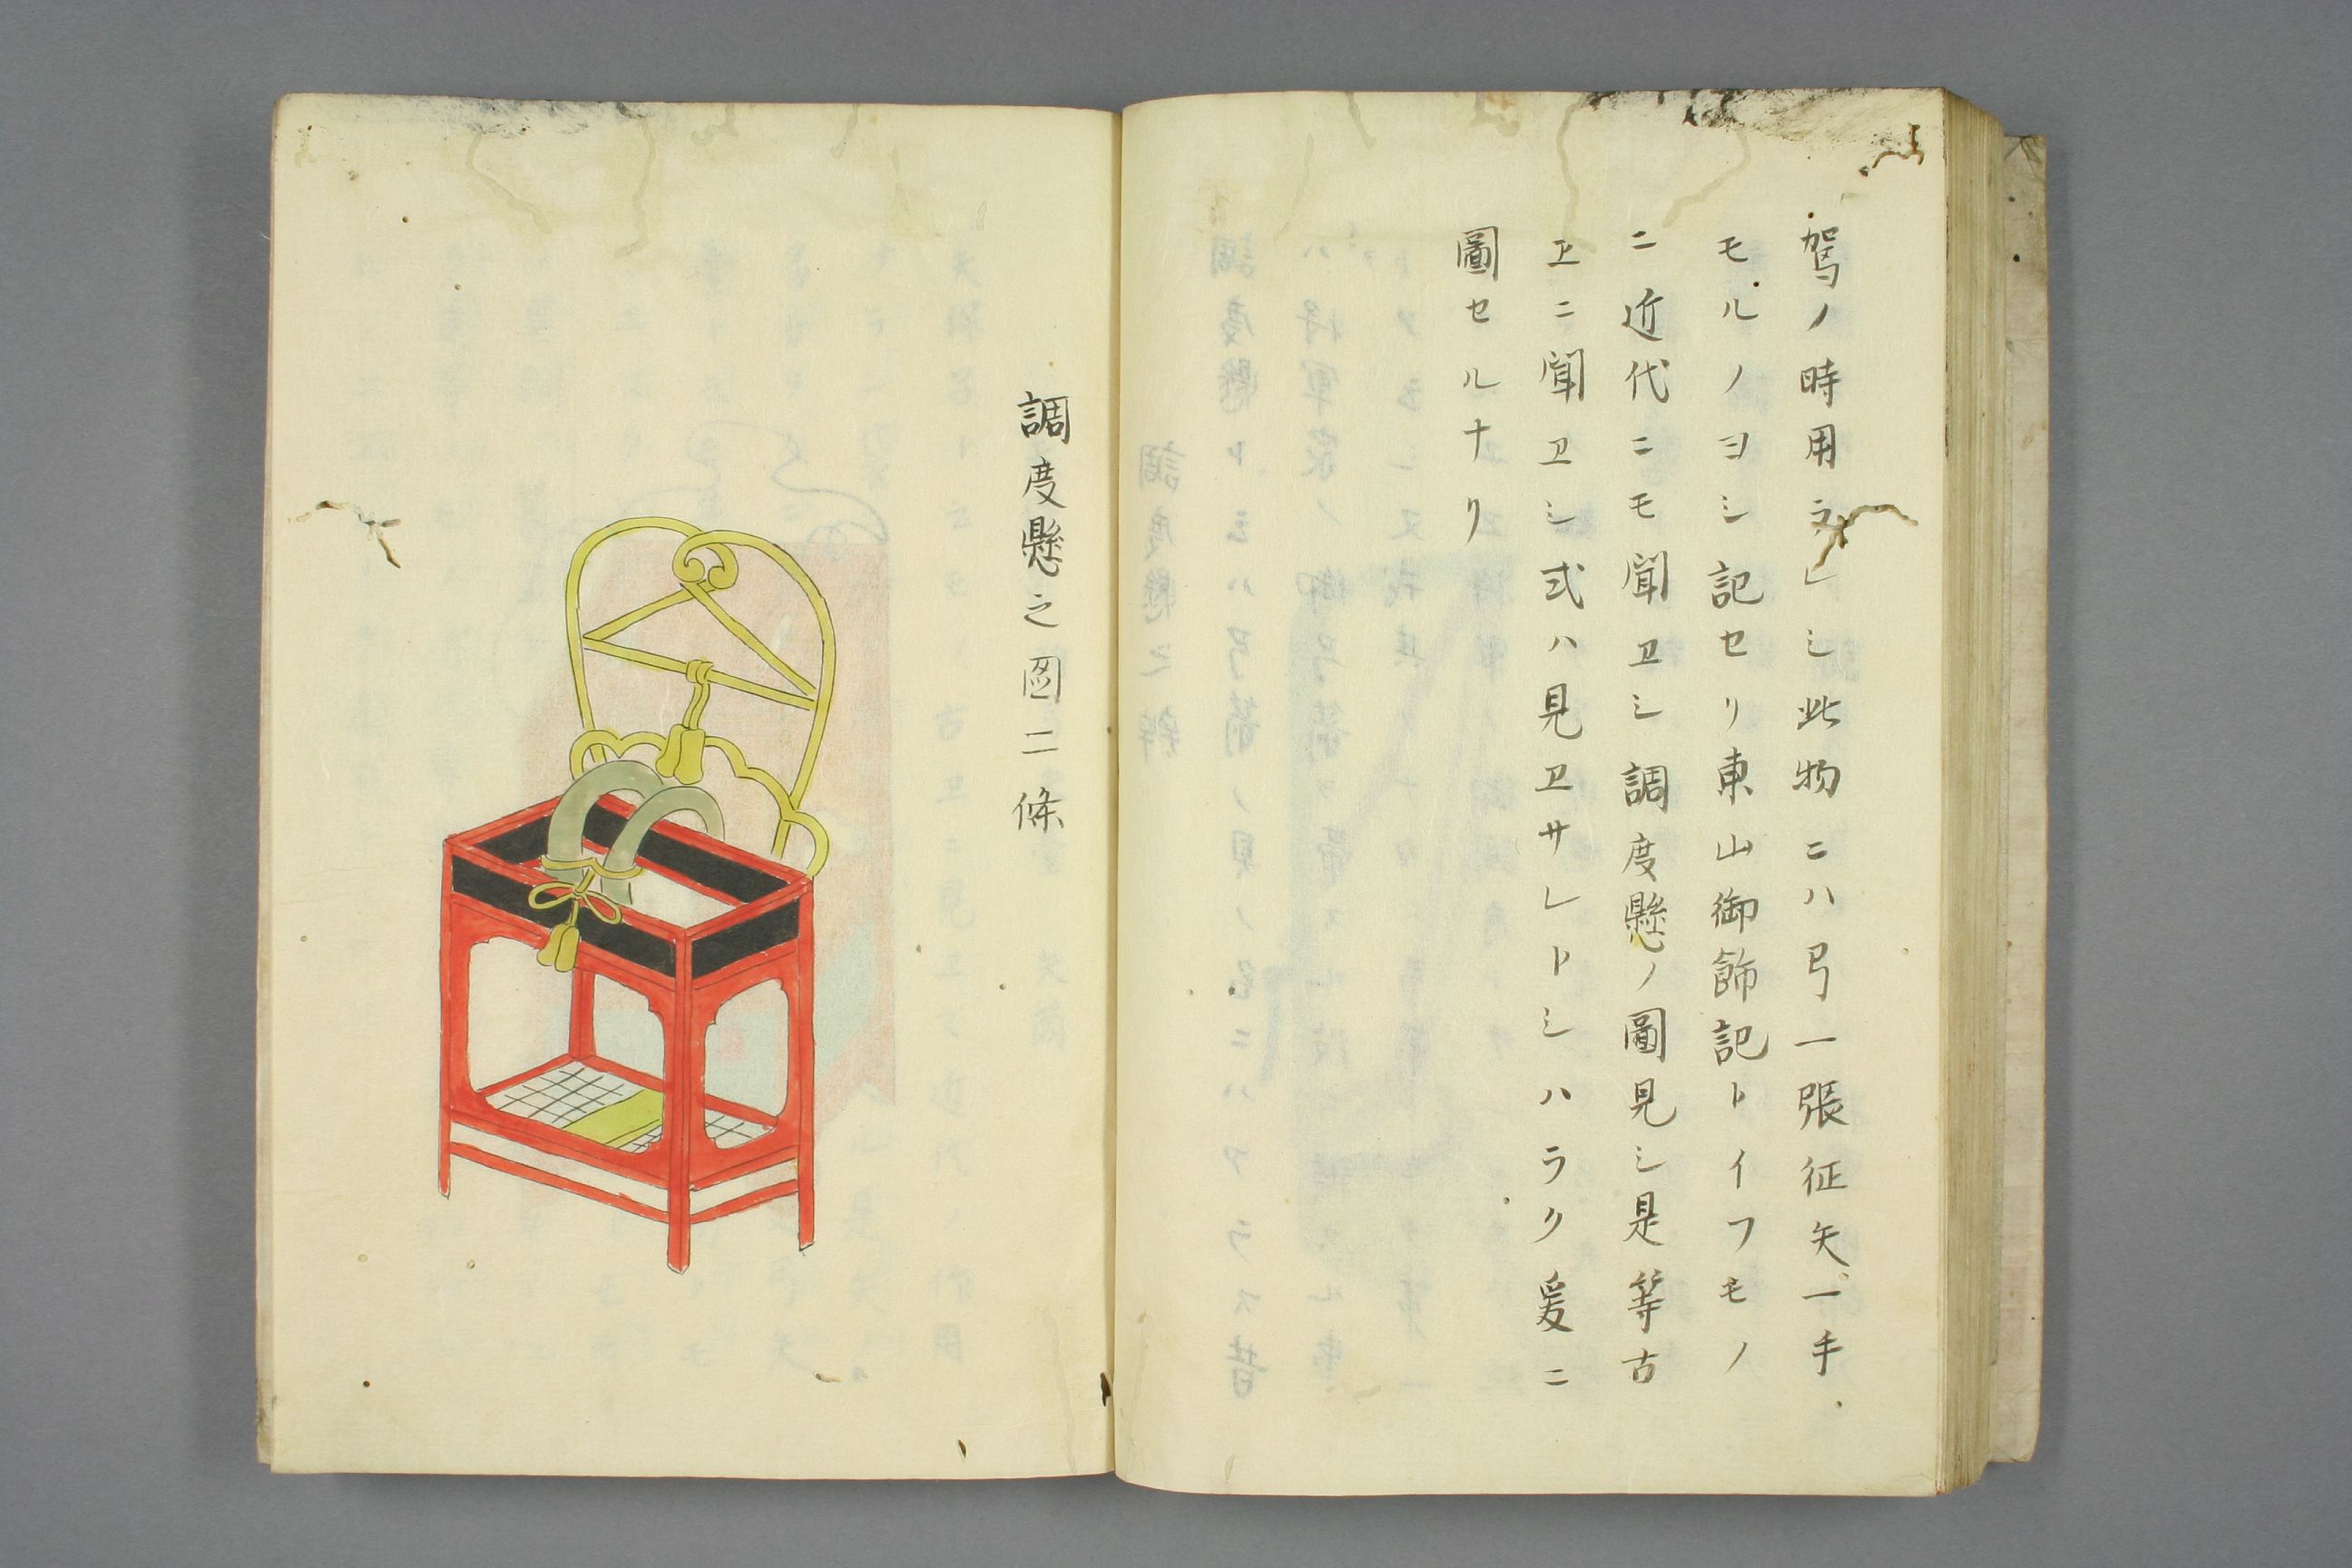 駕ノ時用ラヽシ此物ニハ弓一張征矢一手
モルノヨシ記セリ東山御餝記トイフモノ
ニ近代ニモ聞ヱシ調度懸ノ圖見シ是等古
ヱニ聞ヱシ式ハ見ヱサレトシハラク爰ニ
圖セルナリ
調度懸之図二條